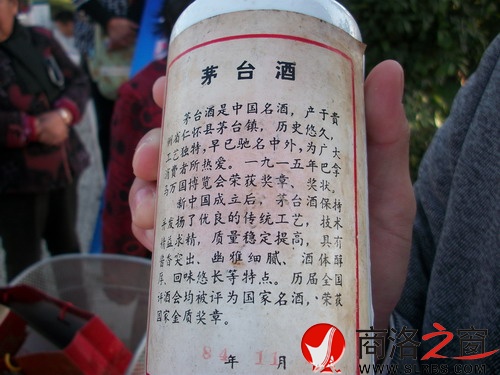 茅台酒
茅台酒是中国名酒，产于贵
州省仁怀县茅台镇，历史悠久，
工艺独特，早已驰名中外，为广大
消费者所热爱。一九一五年巴拿
马万国博览会荣获奖章、奖状。
新中国成立后，茅台酒保持
并发扬了优良的传统工艺，技术
精益求精，质量稳定提高，具有
酱香突出、幽雅细腻、酒体醇
厚、回味悠长等特点。历届全国
评酒会均被评为国家名酒，荣获
国家金质奖章。
84年11月
商洛之窗